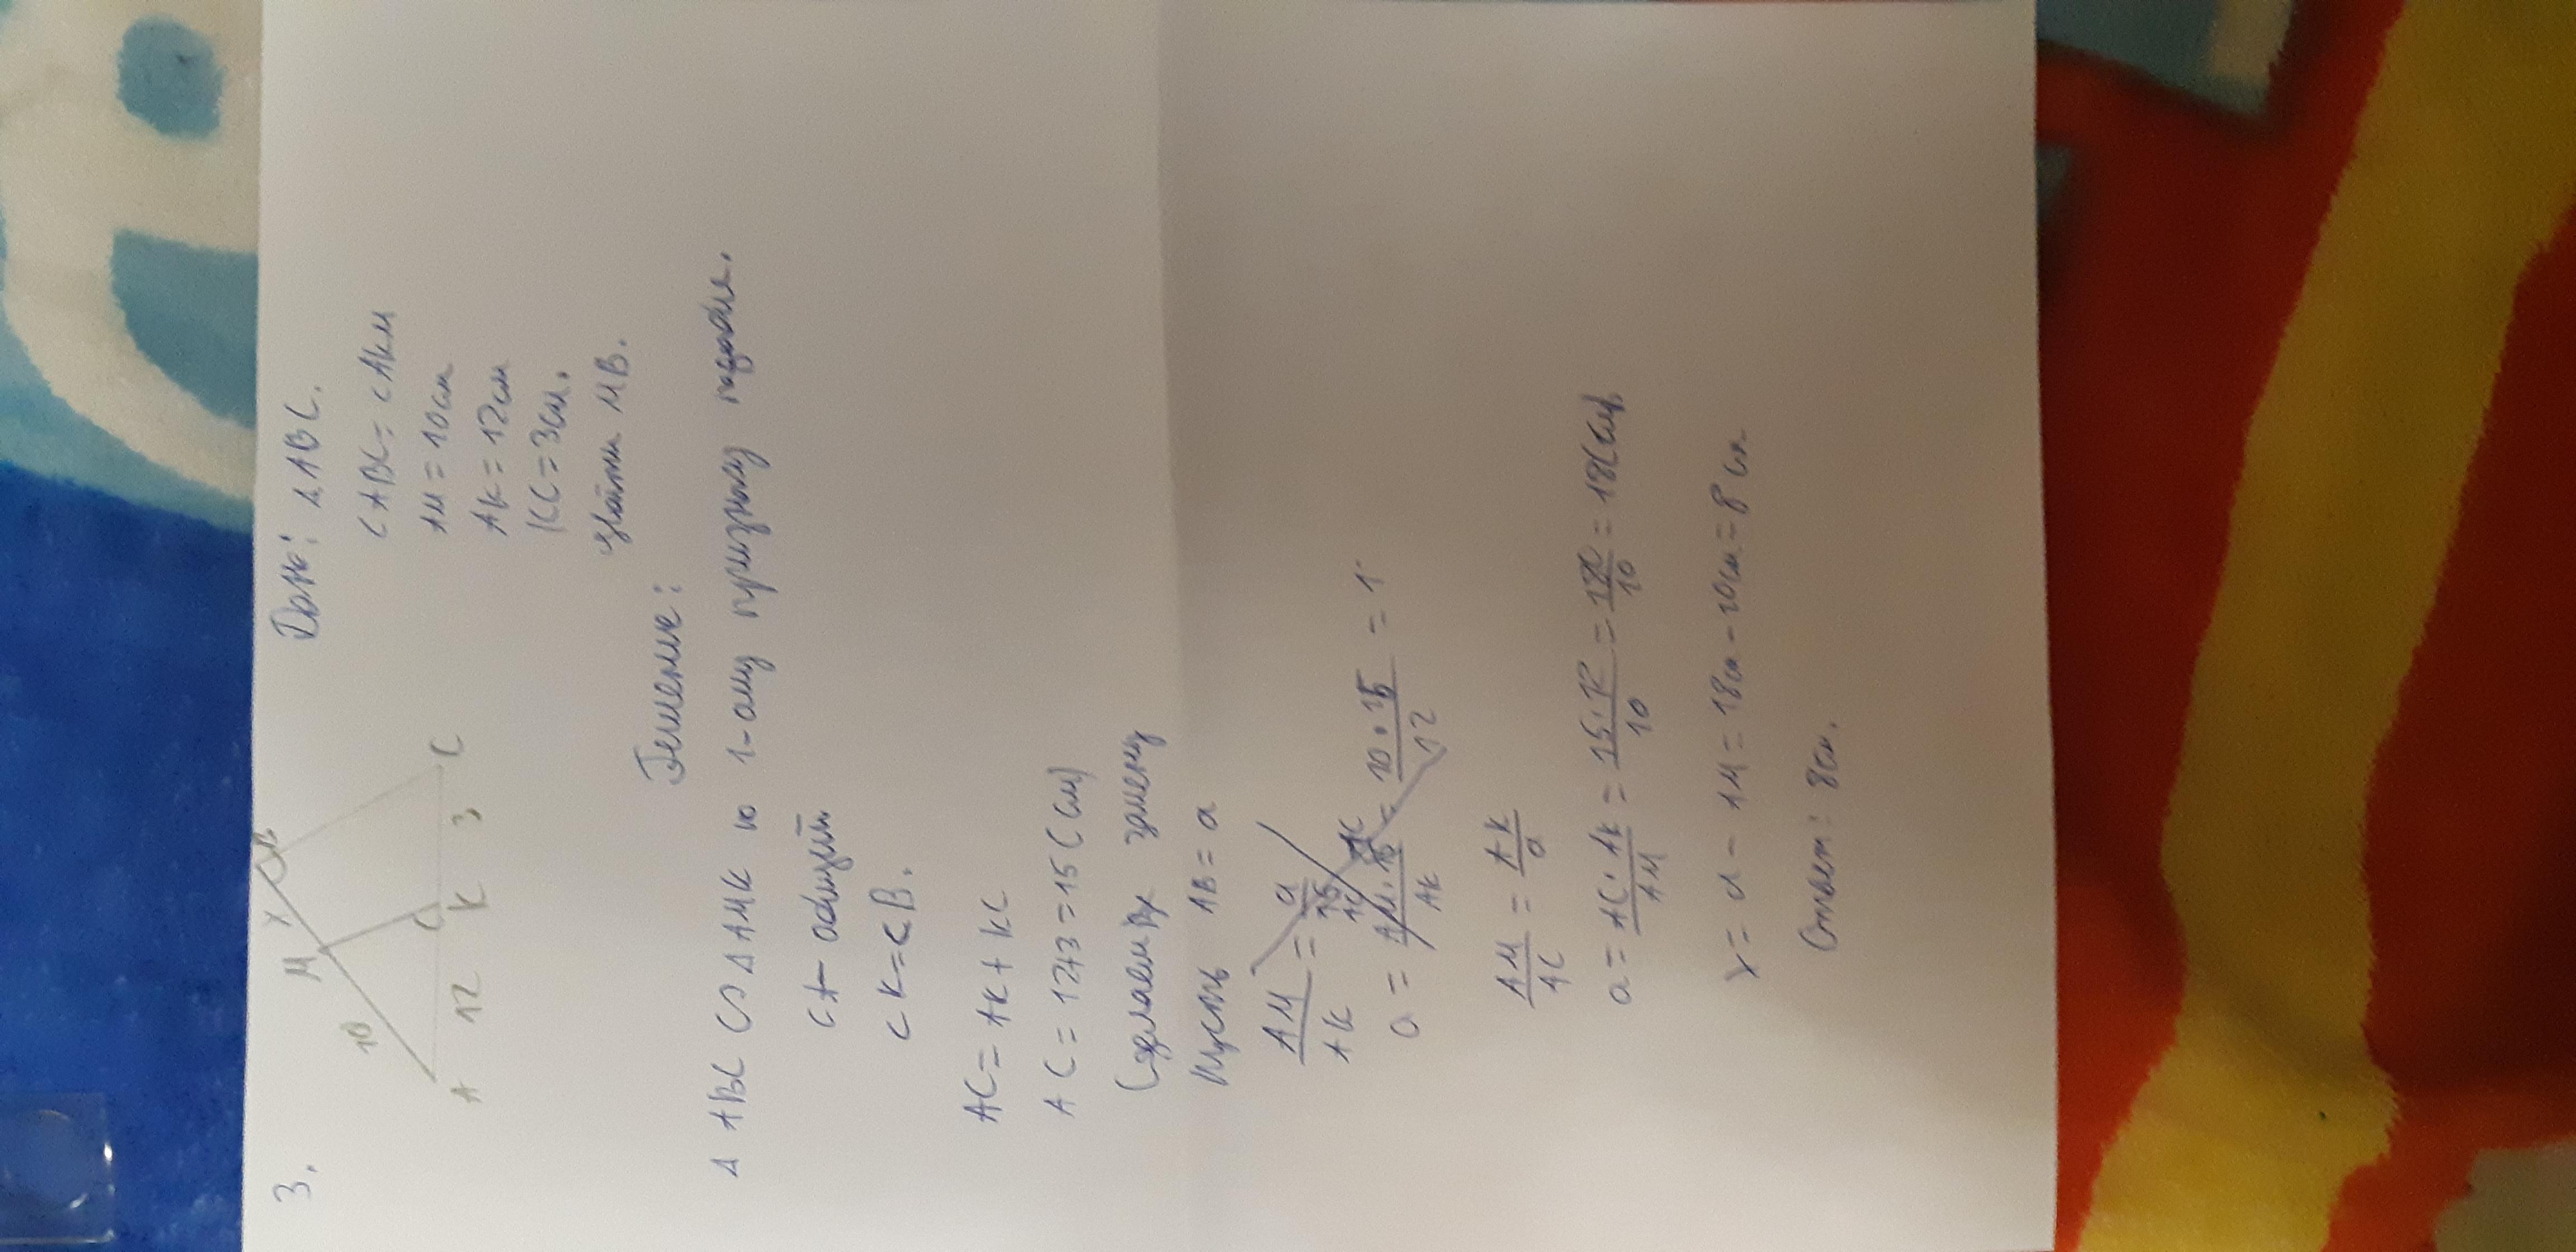 3.
A
10
M
x
B
12
K
3
C
Дано: ΔABC.
∠ABC = ∠AKM
AM = 10см
AK = 12см
KC = 3см.
найти MB.
Решение:
Δ ABC ∽ Δ AMK по 1-ому признаку подобия.
∠A - общий
∠K = ∠B.
AC = AK + KC
AC = 12+3 = 15 (см)
Сделаем замену
Пусть AB = a
AM/AK = a/15
a = AM·15/AK = 10·15/12 = 1
AM/AC = AK/a
a = AC·AK/AM = 15·12/10 = 180/10 = 18(см)
x = a - AM = 18см - 10см = 8см
Ответ: 8см.